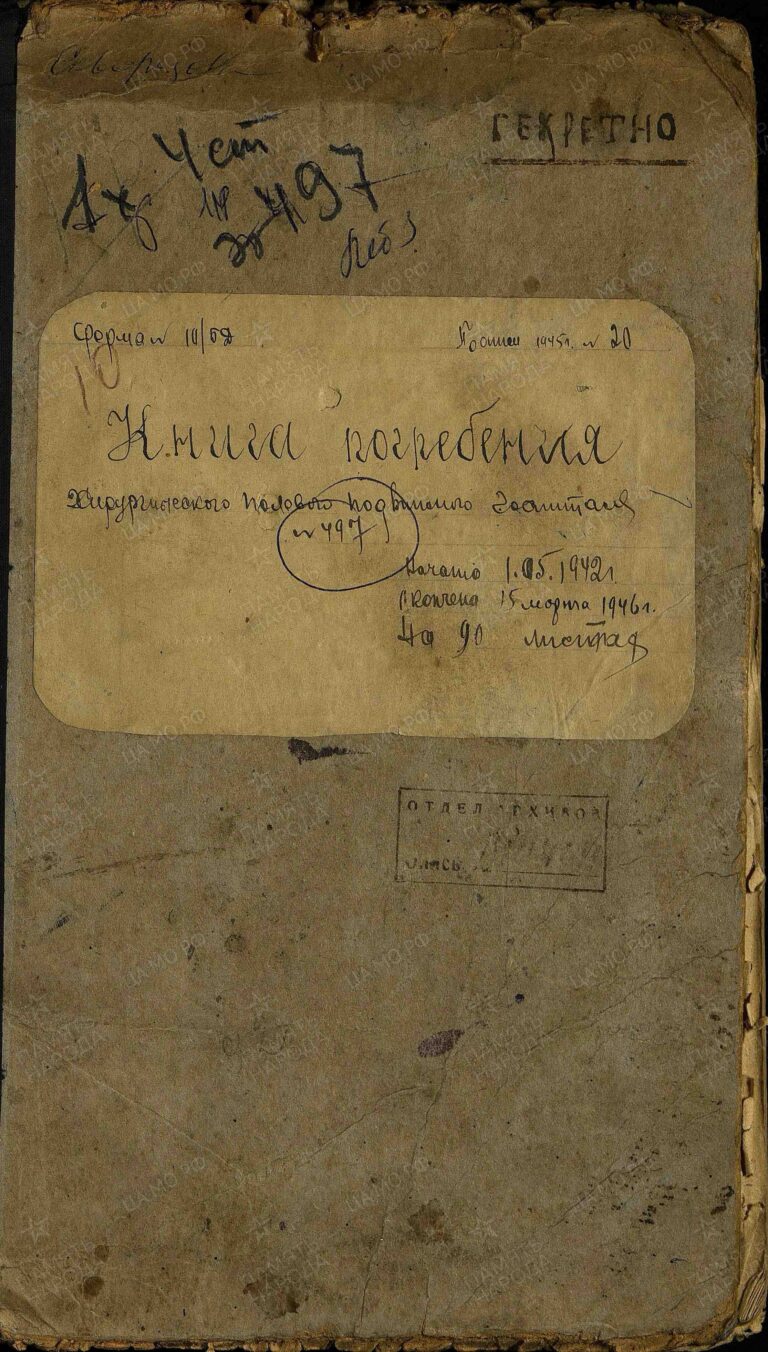 СЕКРЕТНО
497
Форма № 10/БД
1945г. № 20
Книга погребения
Хирургического полевого подвижного госпиталя
№ 497
Начато 1.05.1942г.
Окончена 15 марта 1946г.
На 90 листах
ОТДЕЛ АРХИВОВ
Опись
ЦАМО.РФ
ПАМЯТЬ
НАРОДА